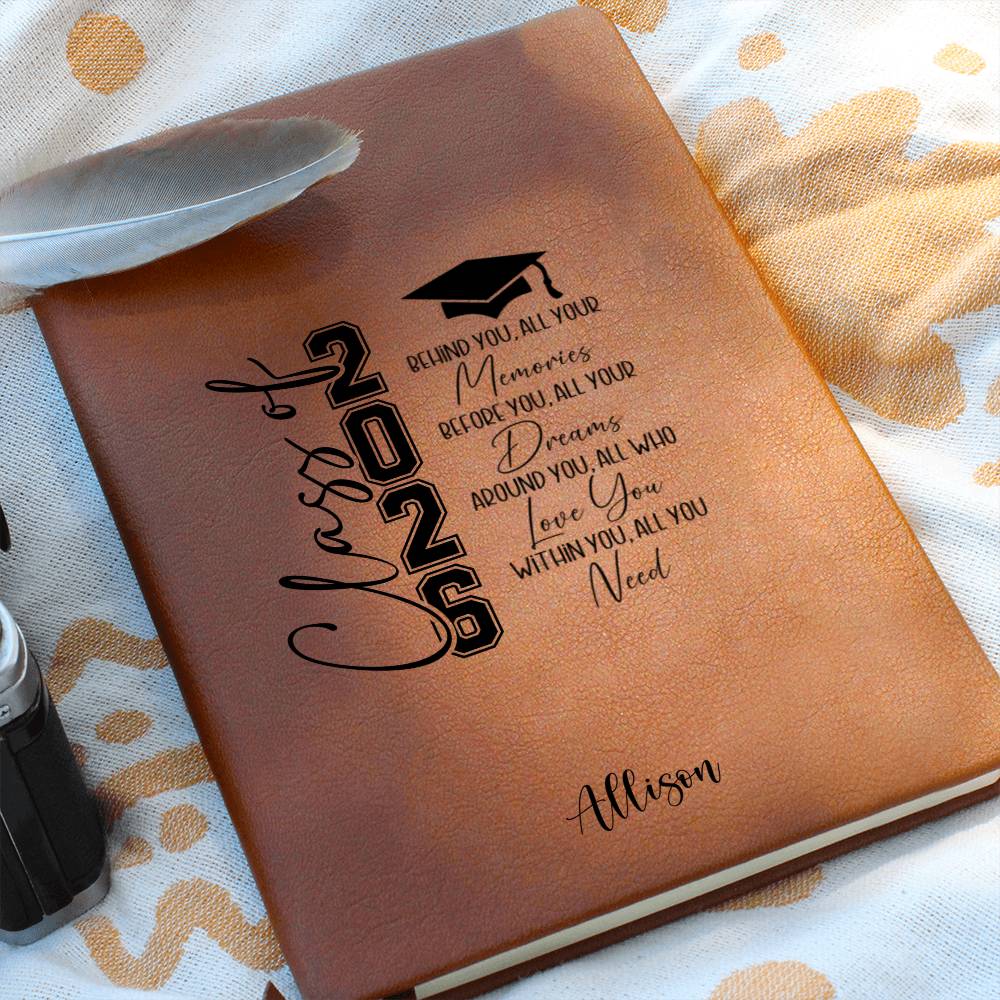 Class of
2026
BEHIND YOU, ALL YOUR
Memories
BEFORE YOU, ALL YOUR
Dreams
AROUND YOU, ALL WHO
Love You
WITHIN YOU, ALL YOU
Need
Allison